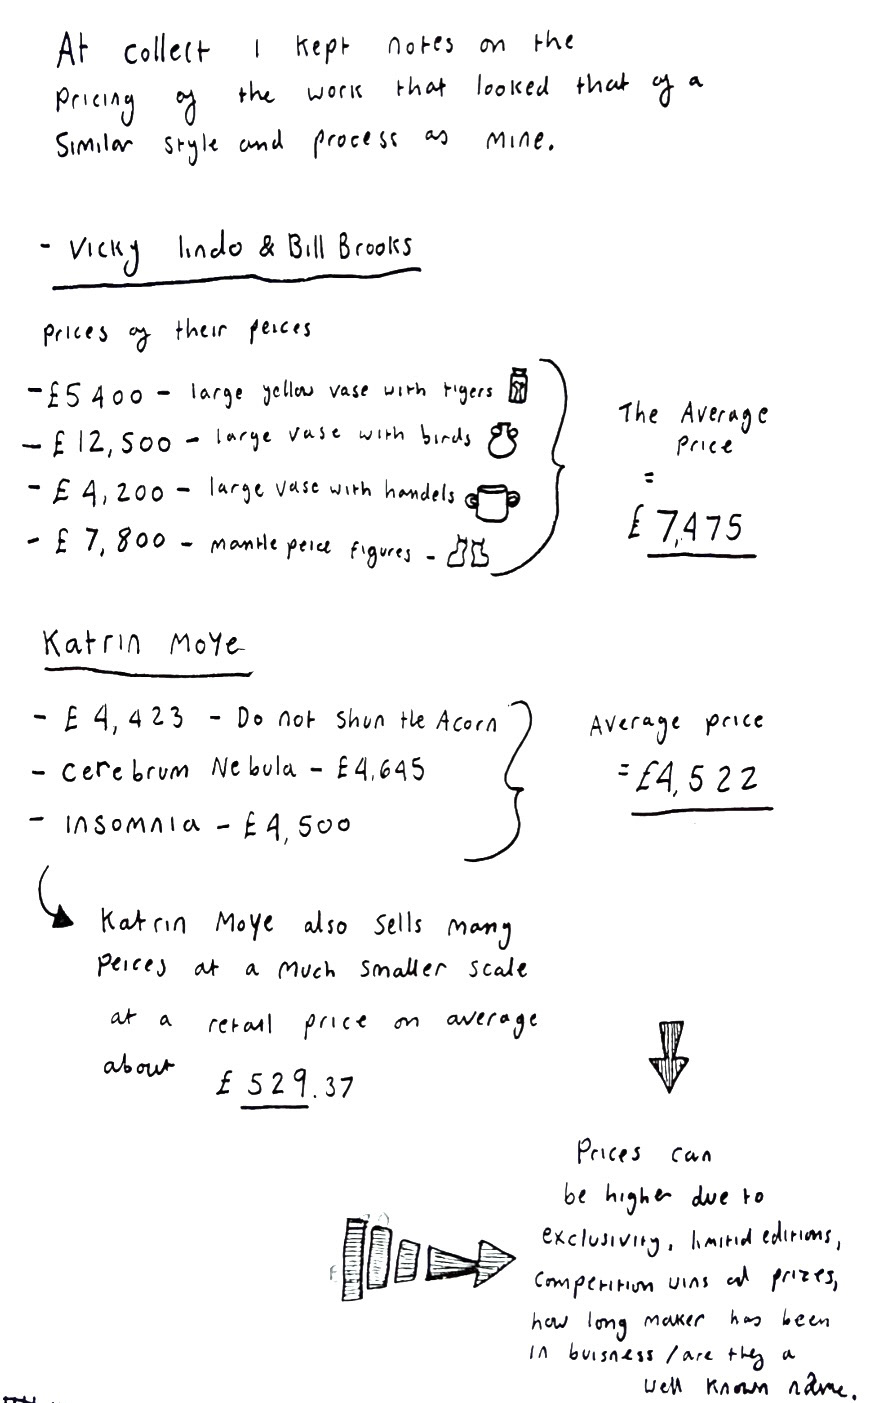 At collect I kept notes on the
Pricing of the work that looked that of a
Similar style and process as mine.
- Vicky lindo & Bill Brooks
Prices of their peices
- £5400 - large yellow vase with tigers
- £12,500 - large vase with birds
- £4,200 - large vase with handels
- £7,800 - mantle peice figures -
The Average
Price
=
£7,475
Katrin Moye
- £4,423 - Do not Shun the Acorn
- Cerebrum Nebula - £4,645
- Insomnia - £4,500
Average price
= £4,522
Katrin Moye also sells many
Peices at a much smaller scale
at a retail price on average
about £529.37
Prices can
be higher due to
exclusivity, limitid editions,
competition wins and prizes,
how long maker has been
in buisness / are they a
well known name.